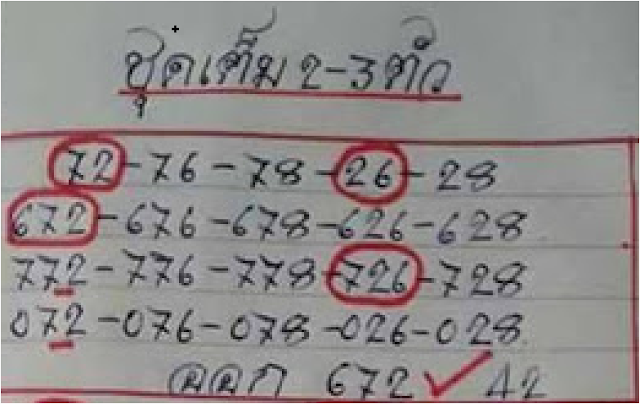 ชุดเต็ม 2-3 ตัว
72-76-78-26-28
672-676-678-626-628
772-776-778-726-728
072-076-078-026-028
ออก 672 ✓ 42